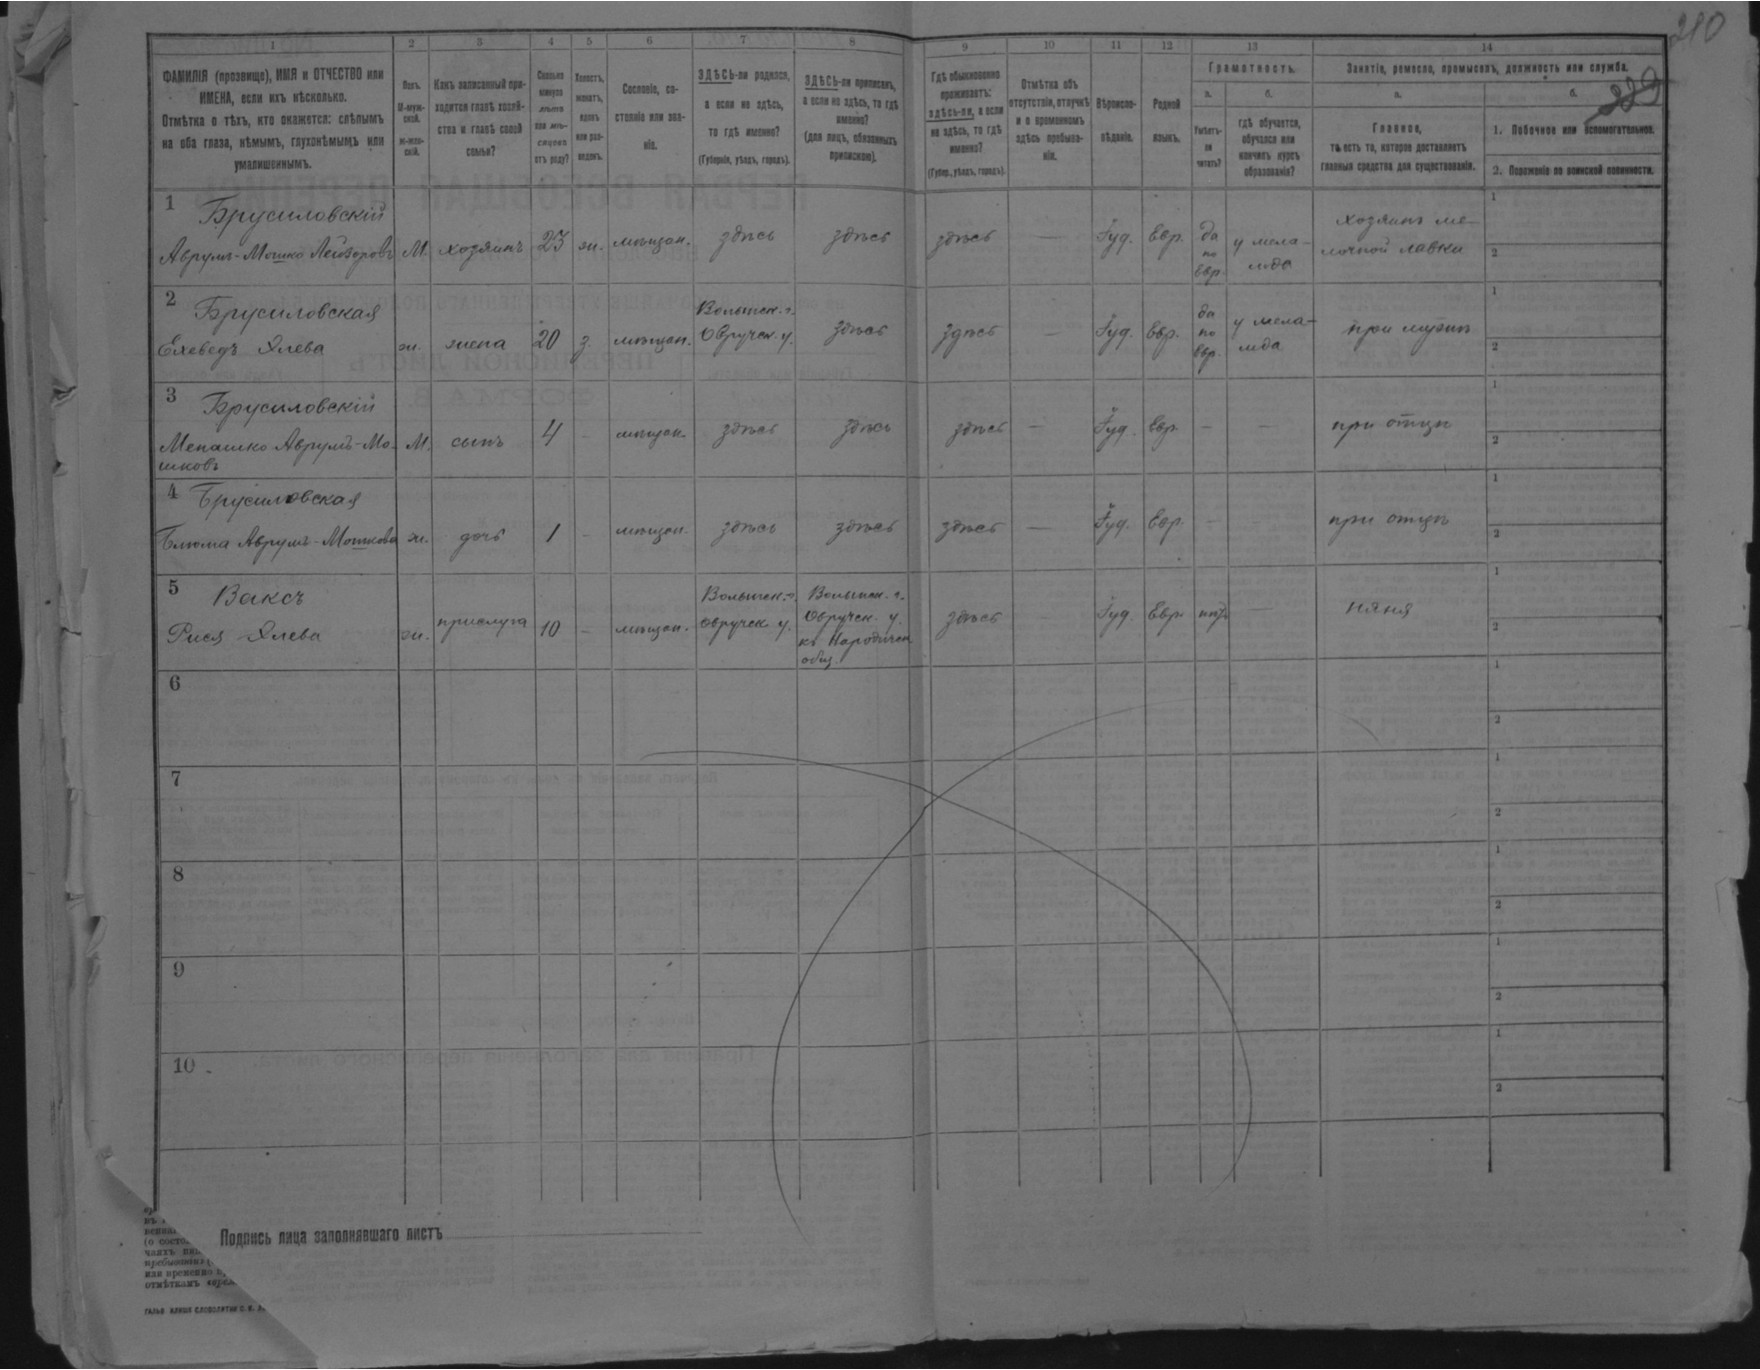 210
1 2 3 4 5 6 7 8 9 10 11 12 13 14
ФАМИЛІЯ (прозвище), ИМЯ и ОТЧЕСТВО или
ИМЕНА, если ихъ нѣсколько.
Отмѣтка о тѣхъ, кто окажется: слѣпымъ
на оба глаза, нѣмымъ, глухонѣмымъ или
умалишеннымъ.
Полъ.
М-муж-
ской.
ж-жен-
скій.
Какъ записанный при-
ходится главѣ хозяй-
ства и главѣ своей
семьи?
Сколько
минуло
лѣтъ
или мѣ-
сяцевъ
отъ роду?
Холостъ,
женатъ,
вдовъ
или раз-
веденъ.
Сословіе, со-
стояніе или зва-
ніе.
ЗДѢСЬ-ли родился,
а если не здѣсь,
то гдѣ именно?
(Губернія, уѣздъ, городъ).
ЗДѢСЬ-ли приписанъ,
а если не здѣсь, то гдѣ
именно?
(для лицъ, обязанныхъ
припискою).
Гдѣ обыкновенно
проживаетъ:
здѣсь-ли, а если
не здѣсь, то гдѣ
именно?
(Губер., уѣздъ, городъ).
Отмѣтка объ
отсутствіи, отлучкѣ
и о временномъ
здѣсь пребыва-
ніи.
Вѣроиспо-
вѣданіе.
Родной
языкъ.
Грамотность.
а.
Умѣетъ-
ли
читать?
б.
гдѣ обучается,
обучался или
кончилъ курсъ
образованія?
Занятіе, ремесло, промыселъ, должность или служба.
а.
Главное,
то есть то, которое доставляетъ
главныя средства для существованія.
б.
229
1. Побочное или вспомогательное.
2. Положеніе по воинской повинности.
1 Брусиловскій
Аврумъ-Мошко Лейзоровъ М. хозяинъ 23 ж. мѣщан. здѣсь здѣсь здѣсь — Іуд. Евр. да по евр. у мела-
меда
хозяинъ ме-
лочной лавки
1
2
2 Брусиловская
Ехеведъ Элева ж. жена 20 з. мѣщан. Волынск. г.
Овручск. у. здѣсь здѣсь — Іуд. Евр. да по евр. у мела-
меда
при мужѣ
1
2
3 Брусиловскій
Менашко Аврумъ-Мо-
шковъ М. сынъ 4 - мѣщан. здѣсь здѣсь здѣсь — Іуд. Евр. — — при отцѣ
1
2
4 Брусиловская
Блюма Аврумъ-Мошкова ж. дочь 1 - мѣщан. здѣсь здѣсь здѣсь — Іуд. Евр. — — при отцѣ
1
2
5 Ваксъ
Рися Элева ж. прислуга 10 - мѣщан. Волынск. г.
Овручск. у.
Волынск. г.
Овручск. у.
къ Народичск
общ.
здѣсь Іуд. Евр. нѣтъ — няня
1
2
6
1
2
7
1
2
8
1
2
9
1
2
10
1
2
Подпись лица заполнявшаго листъ
(о состо
чаяхъ
пребыванія
или временно
отмѣткамъ